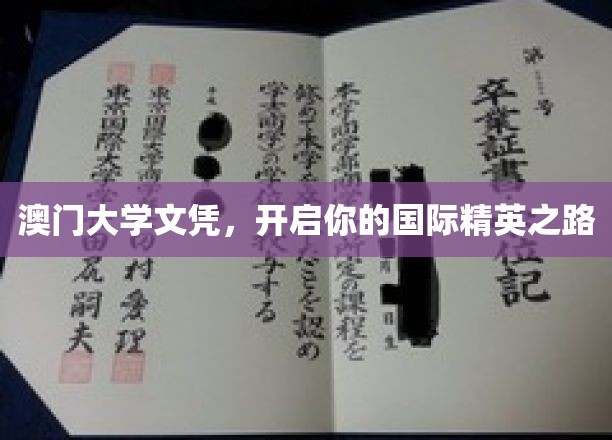 澳门大学文凭，开启你的国际精英之路
第 号
卒業証書 位記
本学商学部商 所定の課程を
月 日生
修めて本学を ことを認め
学士(商学)の学 与する
平成
東京国際大学商 村愛理
東京国際大学学 田尻嗣夫